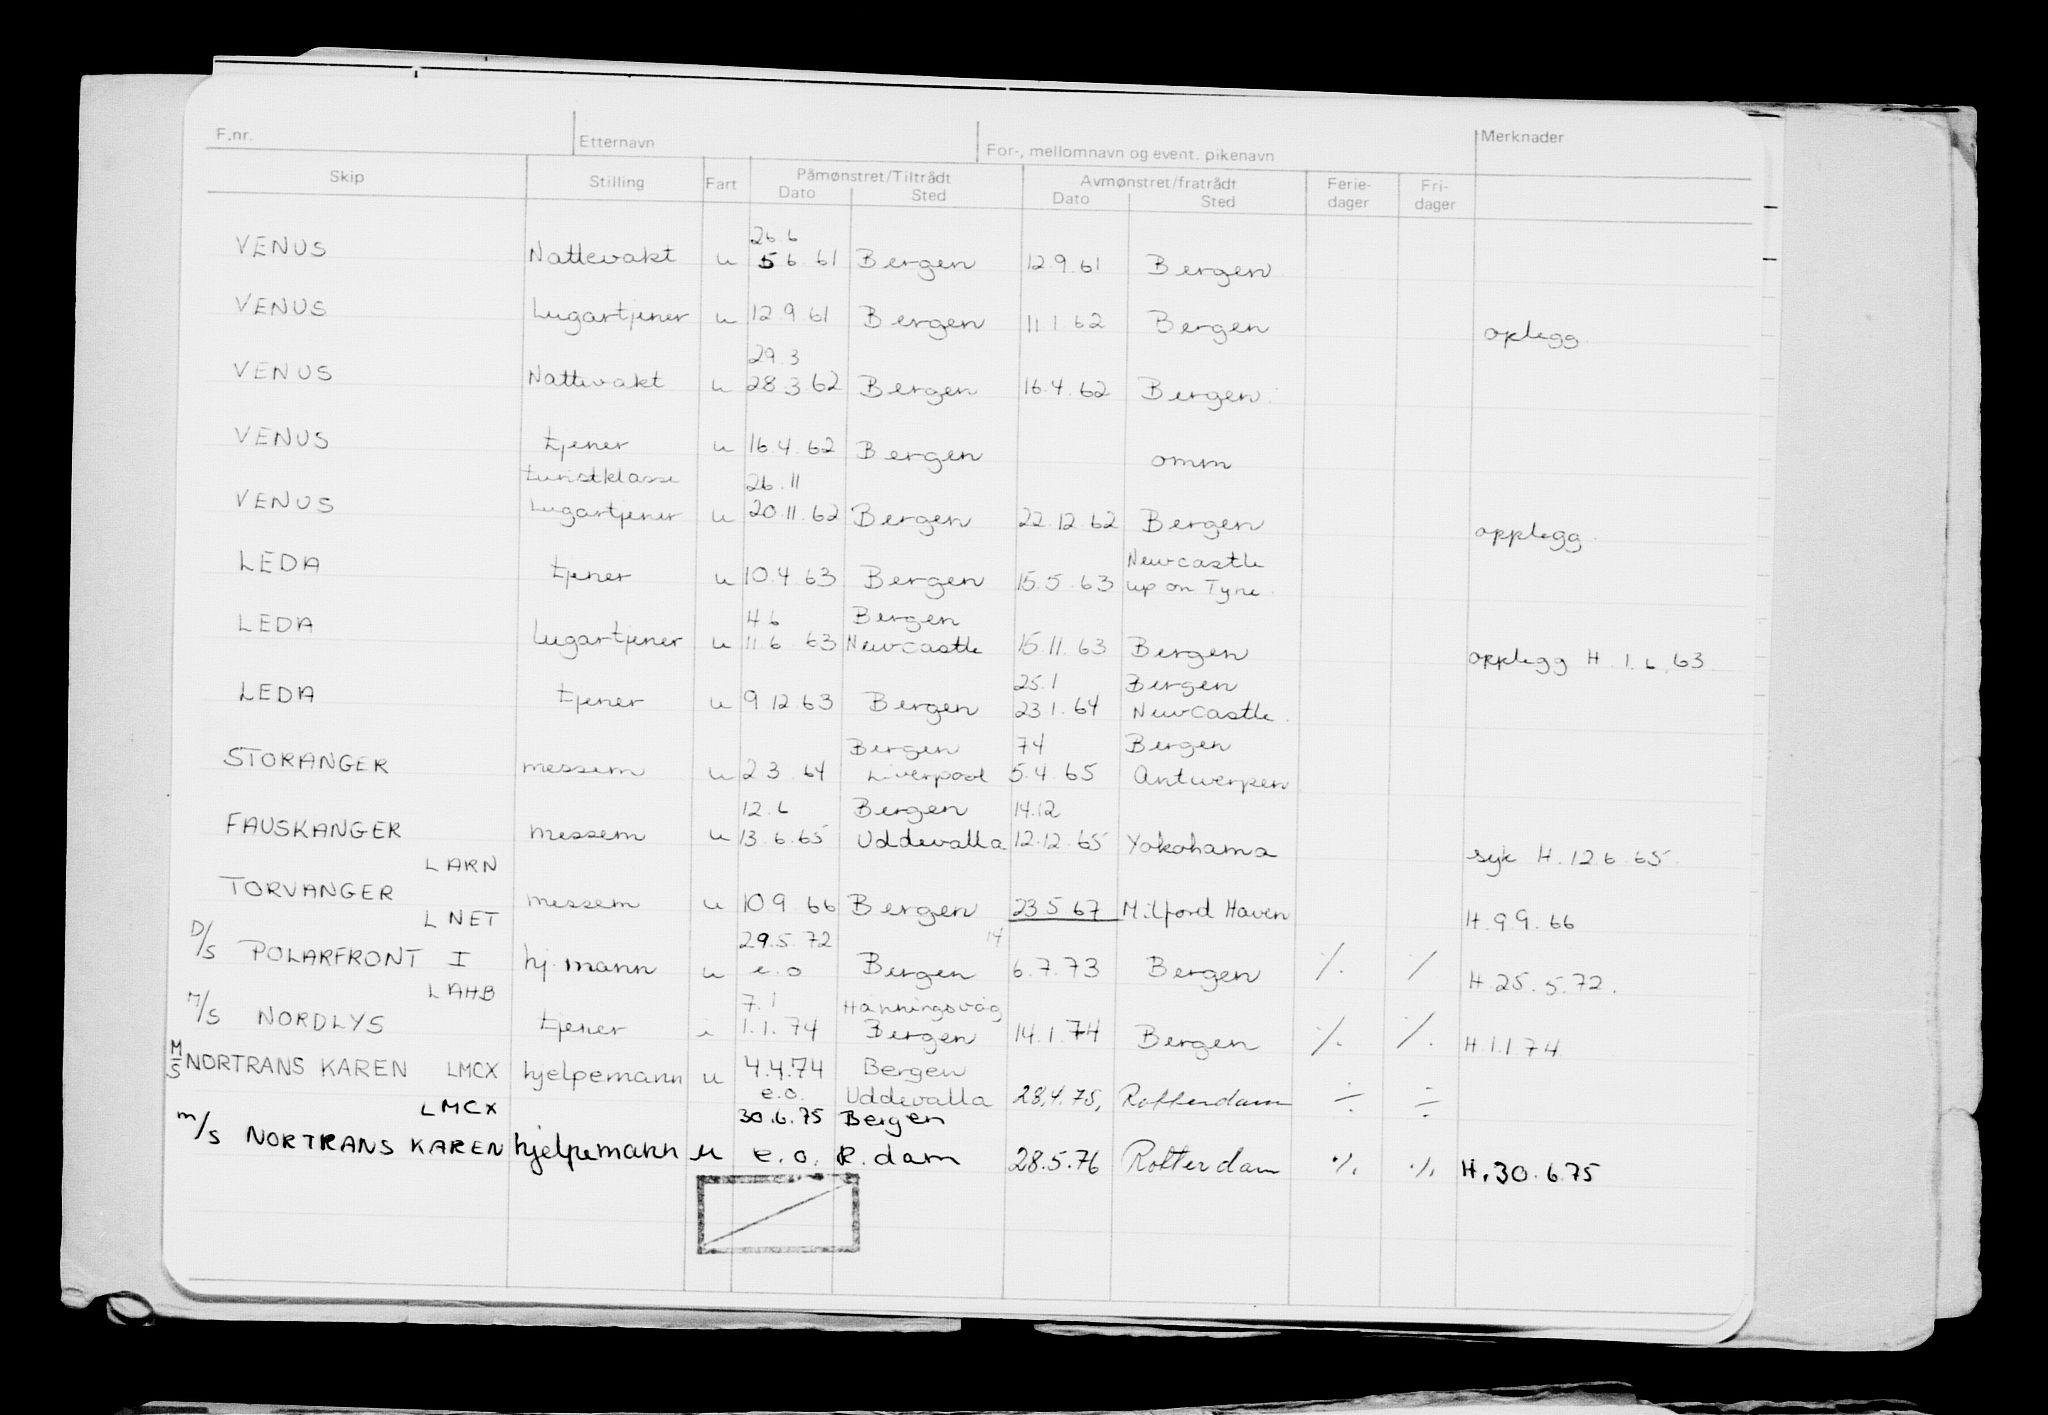 F.nr. Etternavn For-, mellomnavn og event. pikenavn Merknader
Skip Stilling Fart Påmønstret/Tiltrådt Avmønstret/fratrådt Ferie- Fri-
Dato Sted Dato Sted dager dager
26.6
VENUS Nattevakt u 5 6.61 Bergen 12.9.61 Bergen
VENUS Lugartjener u 12.9.61 Bergen 11.1.62 Bergen oplegg.
29.3
VENUS Nattevakt u 28.3.62 Bergen 16.4.62 Bergen.
VENUS tjener u 16.4.62 Bergen omm
turistklasse 26.11
VENUS Lugartjener u 20.11.62 Bergen 22.12.62 Bergen opplegg.
Newcastle
LEDA tjener u 10.4.63 Bergen 15.5.63 up on Tyne.
4.6 Bergen
LEDA Lugartjener u 11.6.63 Newcastle 15.11.63 Bergen opplegg H.1.6.63
25.1 Bergen
LEDA tjener u 9.12.63 Bergen 23.1.64 Newcastle.
Bergen 7.4 Bergen
STORANGER messem u 2.3.64 Liverpool 5.4.65 Antwerpen
12.6 Bergen 14.12
FAUSKANGER messem u 13.6.65 Uddevalla 12.12.65 Yokohama syk H.12.6.65.
LARN
TORVANGER messem u 10.9.66 Bergen 23.5.67 Milford Haven H.9.9.66
LNET 29.5.72 14
D/S POLARFRONT I hj.mann u e.o Bergen 6.7.73 Bergen ·/· ·/· H.25.5.72.
LAHB 7.1 Hanningsvåg
M/S NORDLYS tjener i 1.1.74 Bergen 14.1.74 Bergen ·/· ·/· H.1.1.74
M/S NORTRANS KAREN LMCX hjelpemann u 4.4.74 Bergen
e.o. Uddevalla 28.4.75, Rotterdam ÷ ÷
LMCX 30.6.75 Bergen
m/s NORTRANS KAREN hjelpemann u e.o. R.dam 28.5.76 Rotterdam ·/· ·/· H.30.6.75